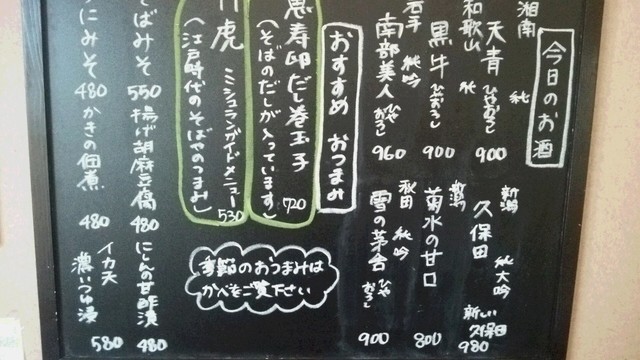 今日のお酒
湘南 天青 純 ひやおろし 900
和歌山 黒牛 純 ひやおろし 900
岩手 南部美人 純吟 ひやおろし 960
新潟 久保田 純大吟 新しい久保田 980
新潟 菊水の甘口 800
秋田 雪の茅舎 純吟 ひやおろし 900
おすすめ おつまみ
恵寿卵だし巻玉子 720
(そばのだしが入っています)
虎 ミシュランガイドメニュー 530
(江戸時代のそばやのつまみ)
季節のおつまみは
かべをご覧下さい
そばみそ 550
揚げ胡麻豆腐 480
にしんの甘酢漬 480
うにみそ 480
かきの佃煮 480
イカ天
濃いつゆ漬 580